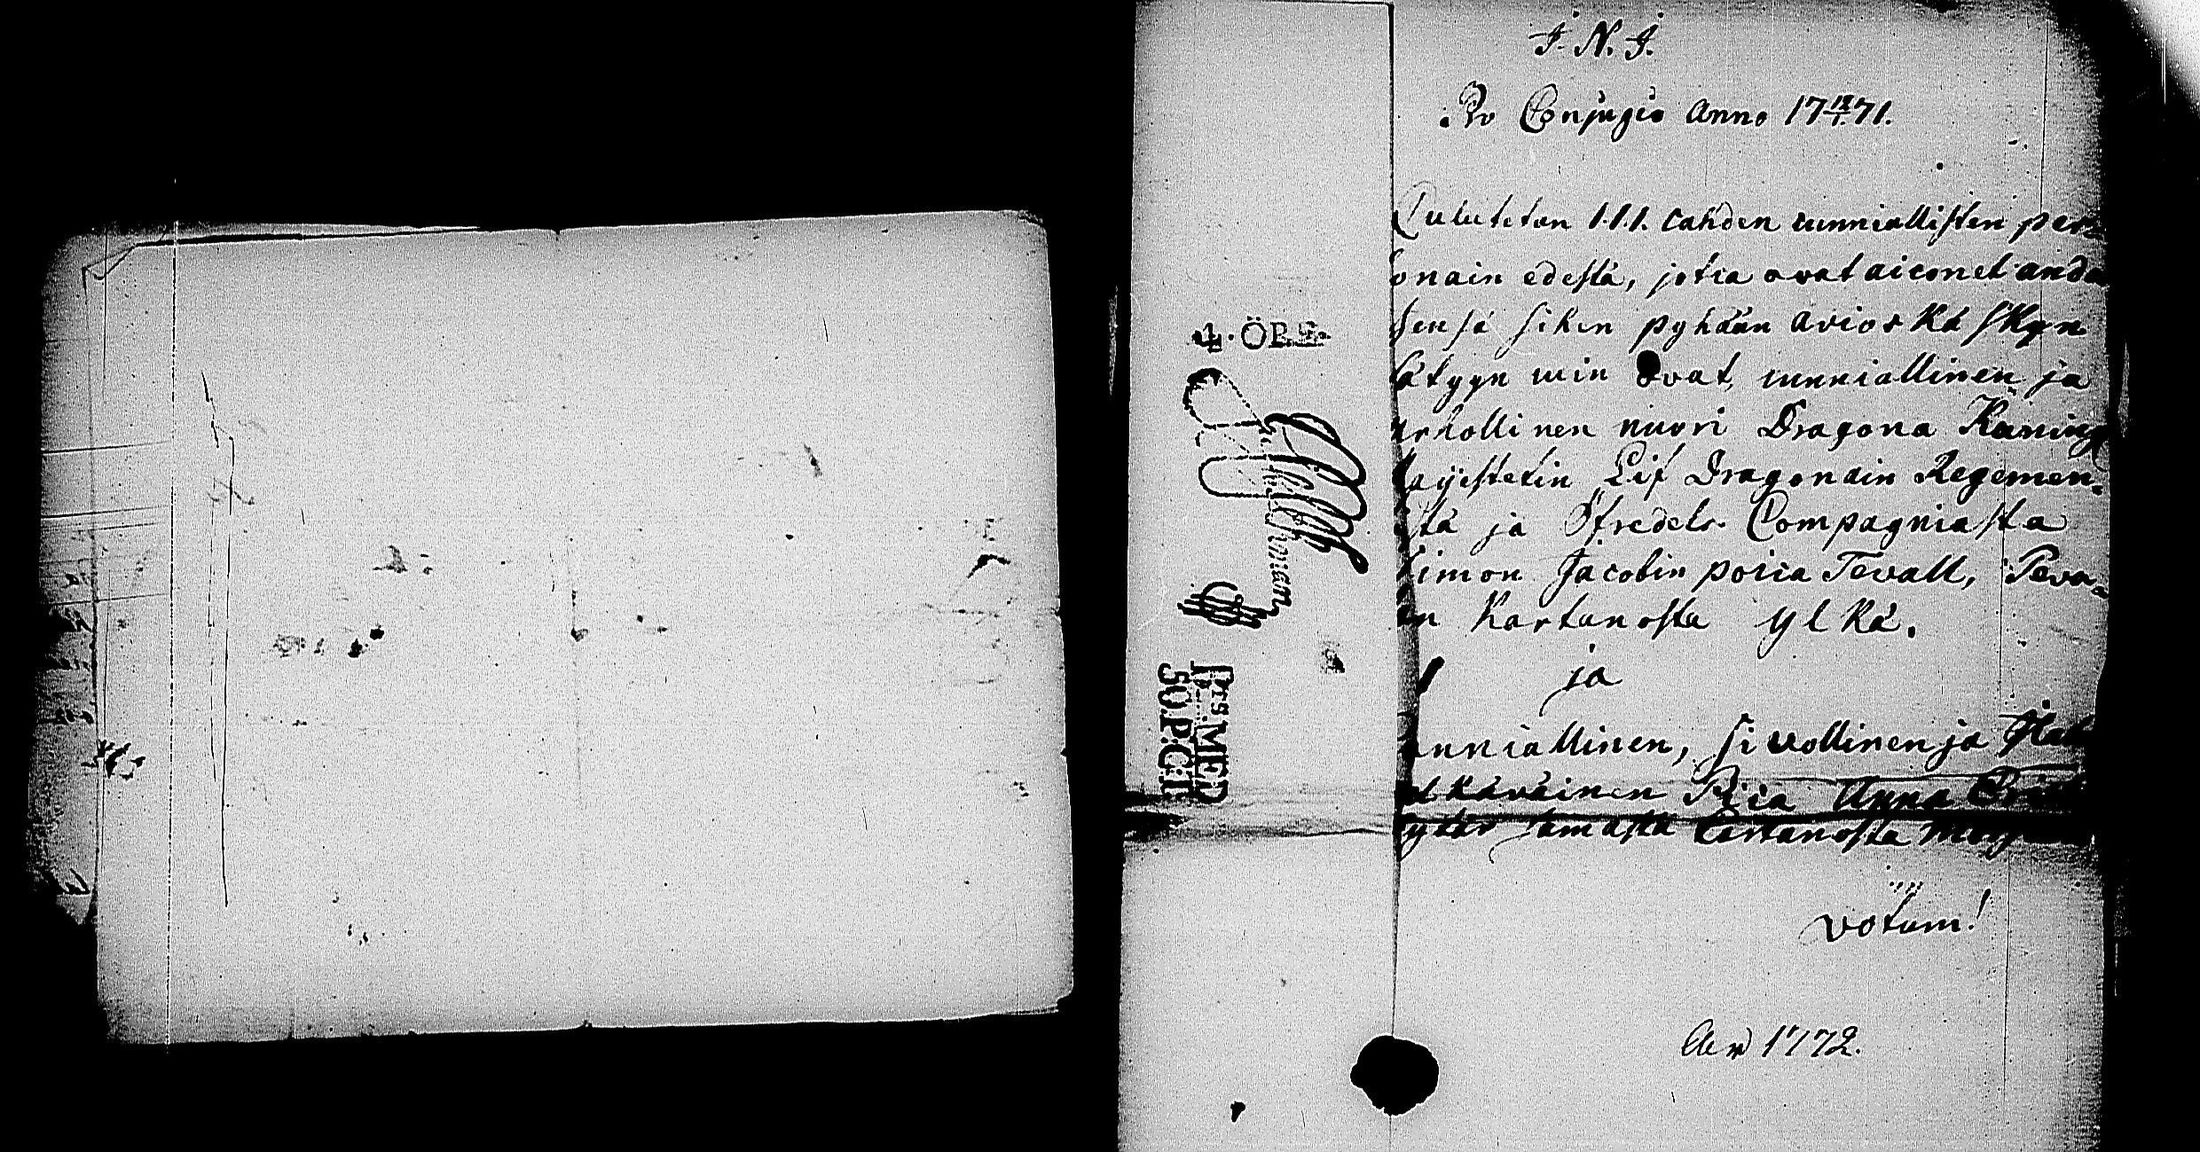 J. N. J.
Pro Conjugio Anno 17 12/1 71.
Culutetan 1.1.1. cahden cunniallisten per-
onain edestä, jotca ovat aiconet anda
hensä sihen pyhään avios Käskyn
ätyyn nuin ovat, cunniallinen ja
urhollinen nuori Dragona Kuning
ayistetin Lif Dragonain Regemen-
stä ja Öfredels Compagniasta
Simon Jacobin poica Tevall, Teva-
n Kartanosta ylkä.
ja
unniallinen, sivollinen ja
käväinen Piia Anna
ytär tämästä Cartanosta
votum!
1772.
4. ÖR S.
Prs. MED
50. P:C:T